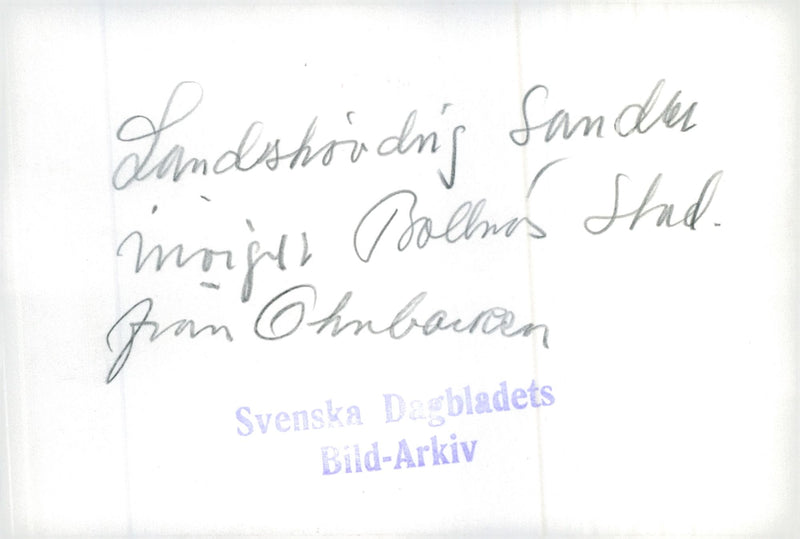 Landshövding Sandler
inviger Bollnäs Stad.
från Ohnbacken
Svenska Dagbladets
Bild-Arkiv